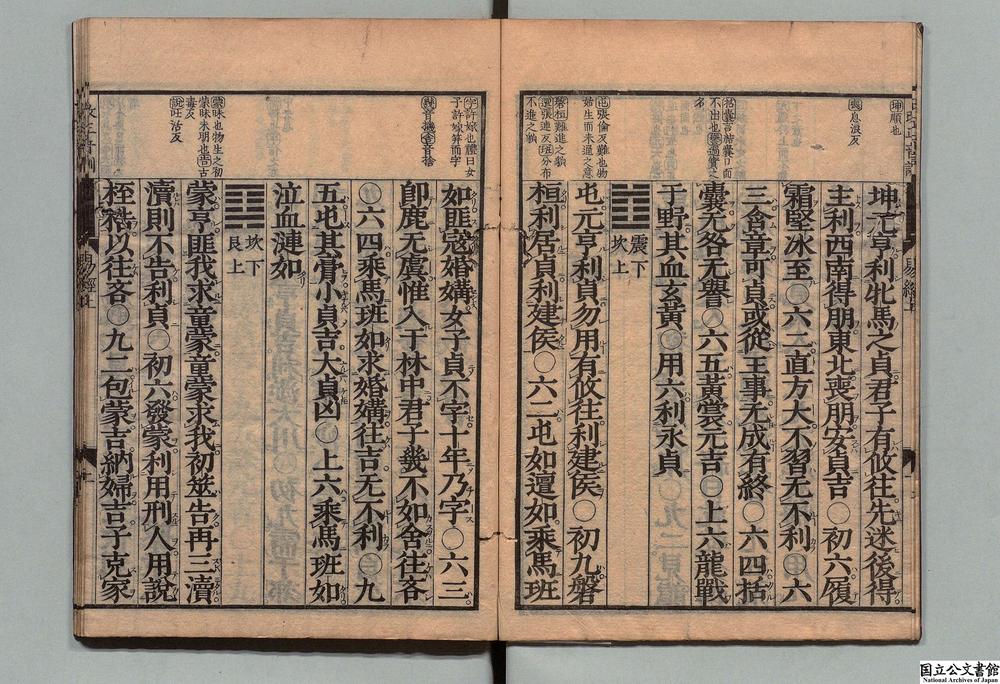 坤順也
坤元亨利牝馬之貞君子有攸往先迷後得
主利西南得朋東北喪朋安貞吉○初六履
霜堅冰至○六二直方大不習无不利○六
三含章可貞或從王事无成有終○六四括
囊无咎无譽○六五黃裳元吉○上六龍戰
于野其血玄黃○用六利永貞
震下
坎上
屯張倫反難也物
始生而未通之意
磐桓難進之貌
邅張連反班分布
不進之貌
屯元亨利貞勿用有攸往利建侯○初九磐
桓利居貞利建侯○六二屯如邅如乘馬班
字許嫁也禮曰女
子許嫁筓而字
如匪寇婚媾女子貞不字十年乃字○六三
卽鹿无虞惟入于林中君子幾不如舍往吝
○六四乘馬班如求婚媾往吉无不利○九
五屯其膏小貞吉大貞凶○上六乘馬班如
泣血漣如
坎下
艮上
蒙昧也物生之初
蒙昧未明也告古
毒反
說吐活反
蒙亨匪我求童蒙童蒙求我初筮告再三瀆
瀆則不告利貞○初六發蒙利用刑人用說
桎梏以往吝○九二包蒙吉納婦吉子克家
易經上
国立公文書館
National Archives of Japan